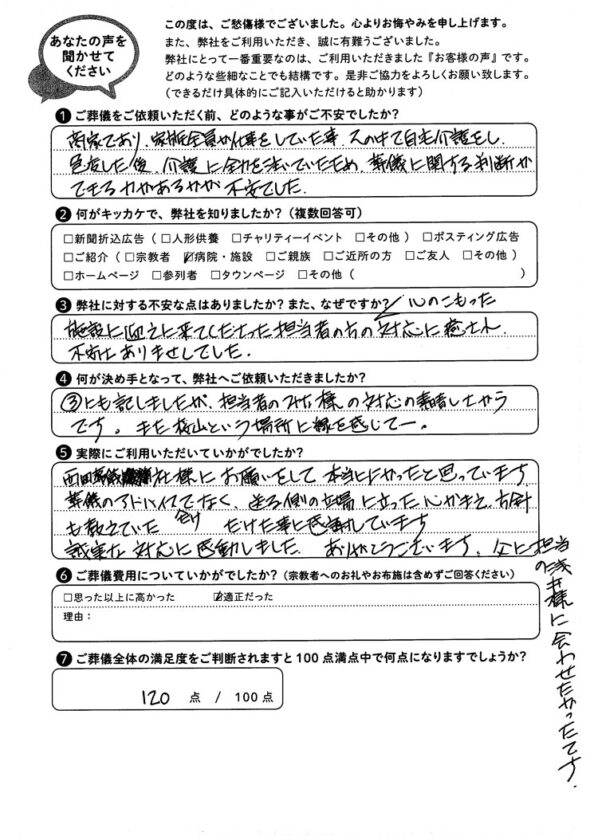 あなたの声を
聞かせて
ください
この度は、ご愁傷様でございました。心よりお悔やみを申し上げます。
また、弊社をご利用いただき、誠に有難うございました。
弊社にとって一番重要なのは、ご利用いただきました『お客様の声』です。
どのような些細なことでも結構です。是非ご協力をよろしくお願い致します。
（できるだけ具体的にご記入いただけると助かります）
❶ ご葬儀をご依頼いただく前、どのような事がご不安でしたか？
商家であり、家族全員が仕事をしていた事、その中で自宅介護をし、
した後、介護に全力を注いでいたため、葬儀に関する判断が
できる力があるかが不安でした。
❷ 何がキッカケで、弊社を知りましたか？（複数回答可）
□新聞折込広告（□人形供養 □チャリティーイベント □その他） □ポスティング広告
□ご紹介（□宗教者 ☑病院・施設 □ご親族 □ご近所の方 □ご友人 □その他）
□ホームページ □参列者 □タウンページ □その他（ ）
❸ 弊社に対する不安な点はありましたか？また、なぜですか？
心のこもった
施設に迎えに来てくださった担当者の方の対応に癒され、
不安はありませんでした。
❹ 何が決め手となって、弊社へご依頼いただきましたか？
③にも記しましたが、担当者のみな様の対応の素晴しさから
です。また桜山という場所に縁を感じてー。
❺ 実際にご利用いただいていかがでしたか？
社様にお願いをして本当によかったと思っています。
葬儀のアドバイスでなく、送る側の立場に立った心がまえ、方針
も教えていただけた事に感動しています
誠実な対応に感動しました。ありがとうございます。父に担当
の浅井様に会わせたかったです。
❻ ご葬儀費用についていかがでしたか？（宗教者へのお礼やお布施は含めずご回答ください）
□思った以上に高かった ☑適正だった
理由：
❼ ご葬儀全体の満足度をご判断されますと100点満点中で何点になりますでしょうか？
120 点 / 100点